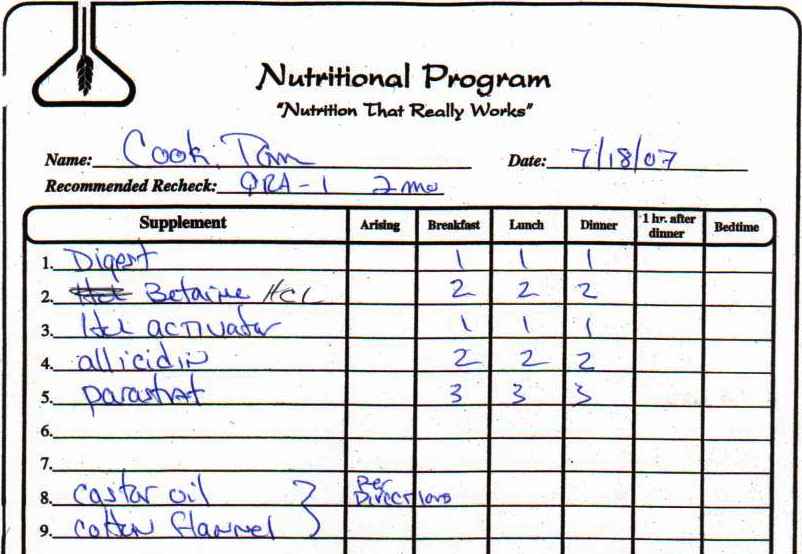 Nutritional Program
"Nutrition That Really Works"
Name: Cook, Tom Date: 7/18/07
Recommended Recheck: QRA-1 2 mo
Supplement Arising Breakfast Lunch Dinner 1 hr. after dinner Bedtime
1. Digest 1 1 1
2. Betaine HCL 2 2 2
3. Hcl activator 1 1 1
4. allicidin 2 2 2
5. parastat 3 3 3
6.
7.
8. castor oil Per Directions
9. cotton flannel